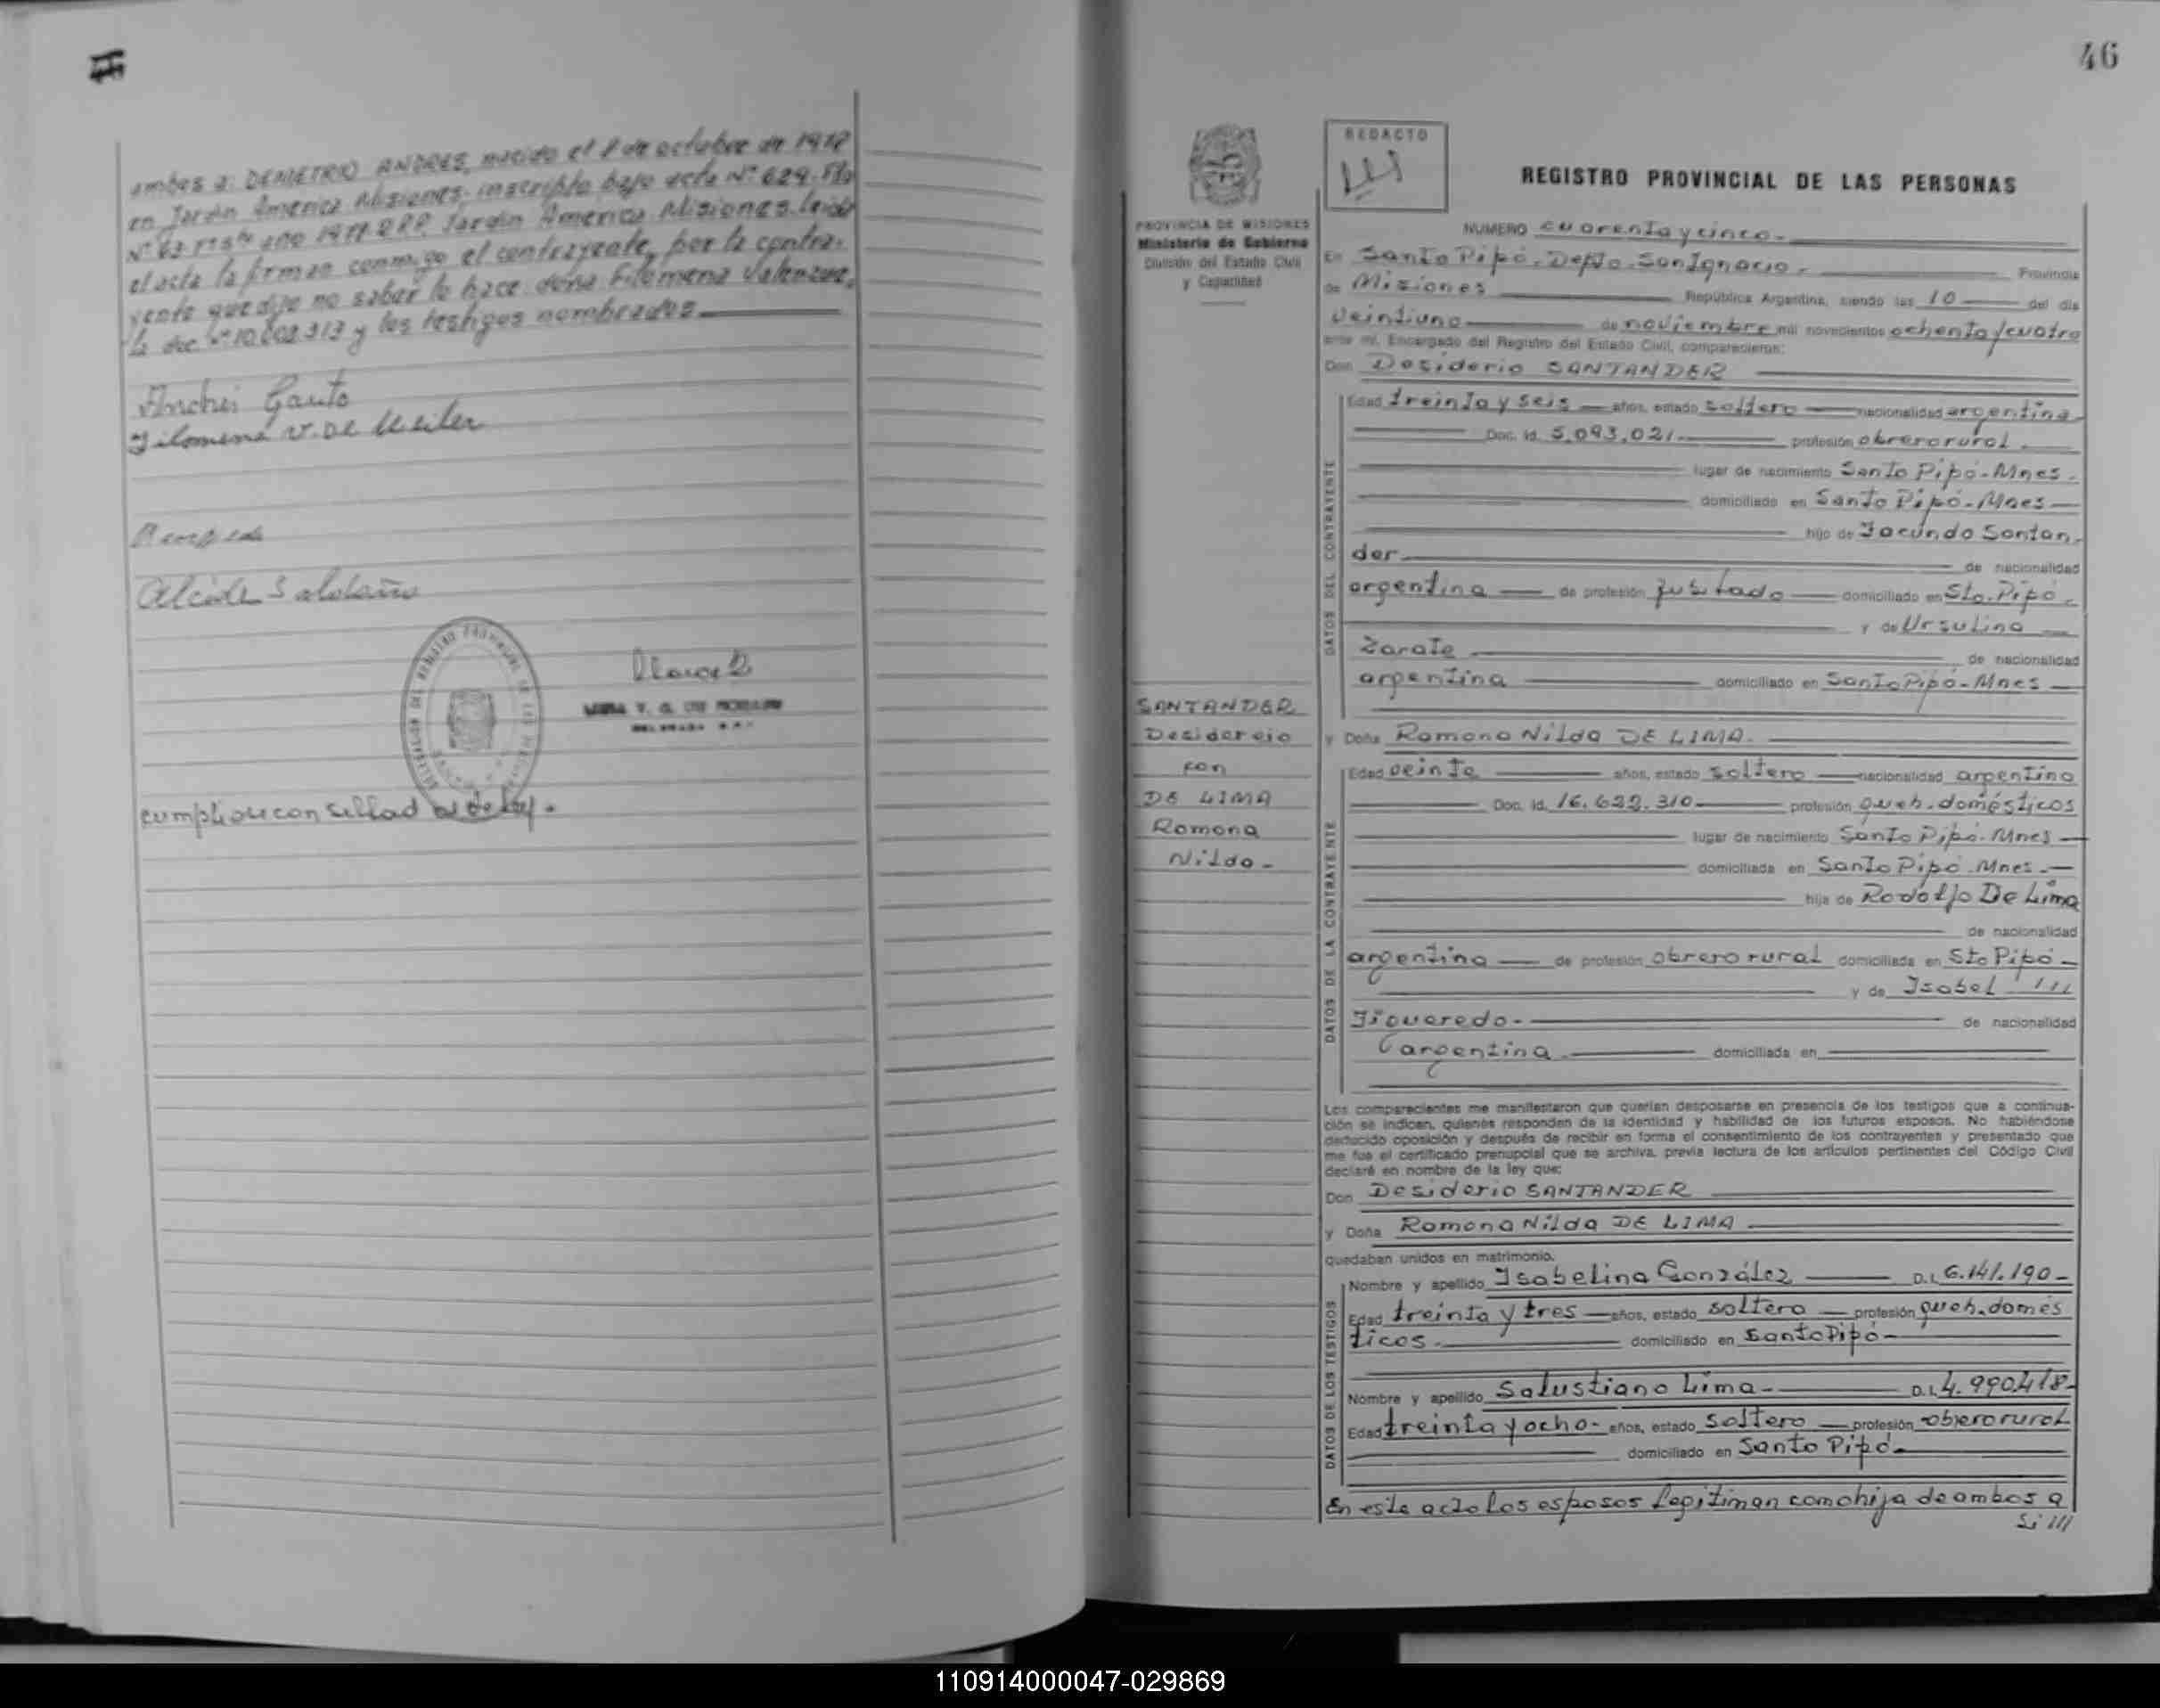 ambos a: DEMETRIO ANDRES, nacido el 8 de octubre de 1972
en Jardín America Misiones. inscripto bajo acta Nº 629. Fº
Nº 63 año 1977 R.P.P. Jardín America Misiones. leída
el acta la firman conmigo el contrayente, por la contra-
yente que dijo no saber lo hace doña Filomena Valenzue-
la doc. Nº 10.002.313 y los testigos nombrados
Gauto
Filomena V. De
Alcide Saldaño
cumplióse con sellado de ley.
46
PROVINCIA DE MISIONES
Ministerio de Gobierno
División del Estado Civil
y Capacidad
REDACTO
REGISTRO PROVINCIAL DE LAS PERSONAS
NUMERO cuarenta y cinco.
En Santo Pipó. Depto. San Ignacio. Provincia
de Misiones República Argentina, siendo las 10 del día
veintiuno de noviembre mil novecientos ochenta y cuatro
ante mí, Encargado del Registro del Estado Civil, comparecieron:
Don Desiderio SANTANDER
DATOS DEL CONTRAYENTE
Edad treinta y seis años, estado soltero nacionalidad argentina
Doc. Id. 5.093.021. profesión obrero rural.
lugar de nacimiento Santo Pipó-Mnes.
domiciliado en Santo Pipó-Mnes
hijo de Facundo Santan-
der de nacionalidad
argentina de profesión jubilado domiciliado en Sto. Pipó
y de Ursulina
Zarate de nacionalidad
argentina domiciliado en Santo Pipó-Mnes
SANTANDER
Desiderio
con
DE LIMA
Romona
Nilda-
y Doña Romona Nilda DE LIMA.
DATOS DE LA CONTRAYENTE
Edad veinte años, estado soltera nacionalidad argentina
Doc. Id. 16.629.310 profesión queh. domésticos
lugar de nacimiento Santo Pipó. Mnes
domiciliada en Santo Pipó. Mnes.
hija de Rodolfo De Lima
de nacionalidad
argentina de profesión obrero rural domiciliada en Sto Pipó
y de Isabel
Figueredo. de nacionalidad
argentina domiciliada en
Los comparecientes me manifestaron que querían desposarse en presencia de los testigos que a continua-
ción se indican, quienes responden de la identidad y habilidad de los futuros esposos. No habiéndose
deducido oposición y después de recibir en forma el consentimiento de los contrayentes y presentado que
me fue el certificado prenupcial que se archiva, previa lectura de los artículos pertinentes del Código Civil
declaré en nombre de la ley que:
Don Desiderio SANTANDER
y Doña Romona Nilda DE LIMA
quedaban unidos en matrimonio.
DATOS DE LOS TESTIGOS
Nombre y apellido Isabelina González D.I. 6.141.190-
Edad treinta y tres años, estado soltera profesión queh. domés
ticos. domiciliado en Santo Pipó-
Nombre y apellido Salustiano Lima- D.I. 4.990.418-
Edad treinta y ocho- años, estado soltero profesión obrero rural
domiciliado en Santo Pipó-
En este acto los esposos legitiman como hija de ambos a
Si ///
110914000047-029869